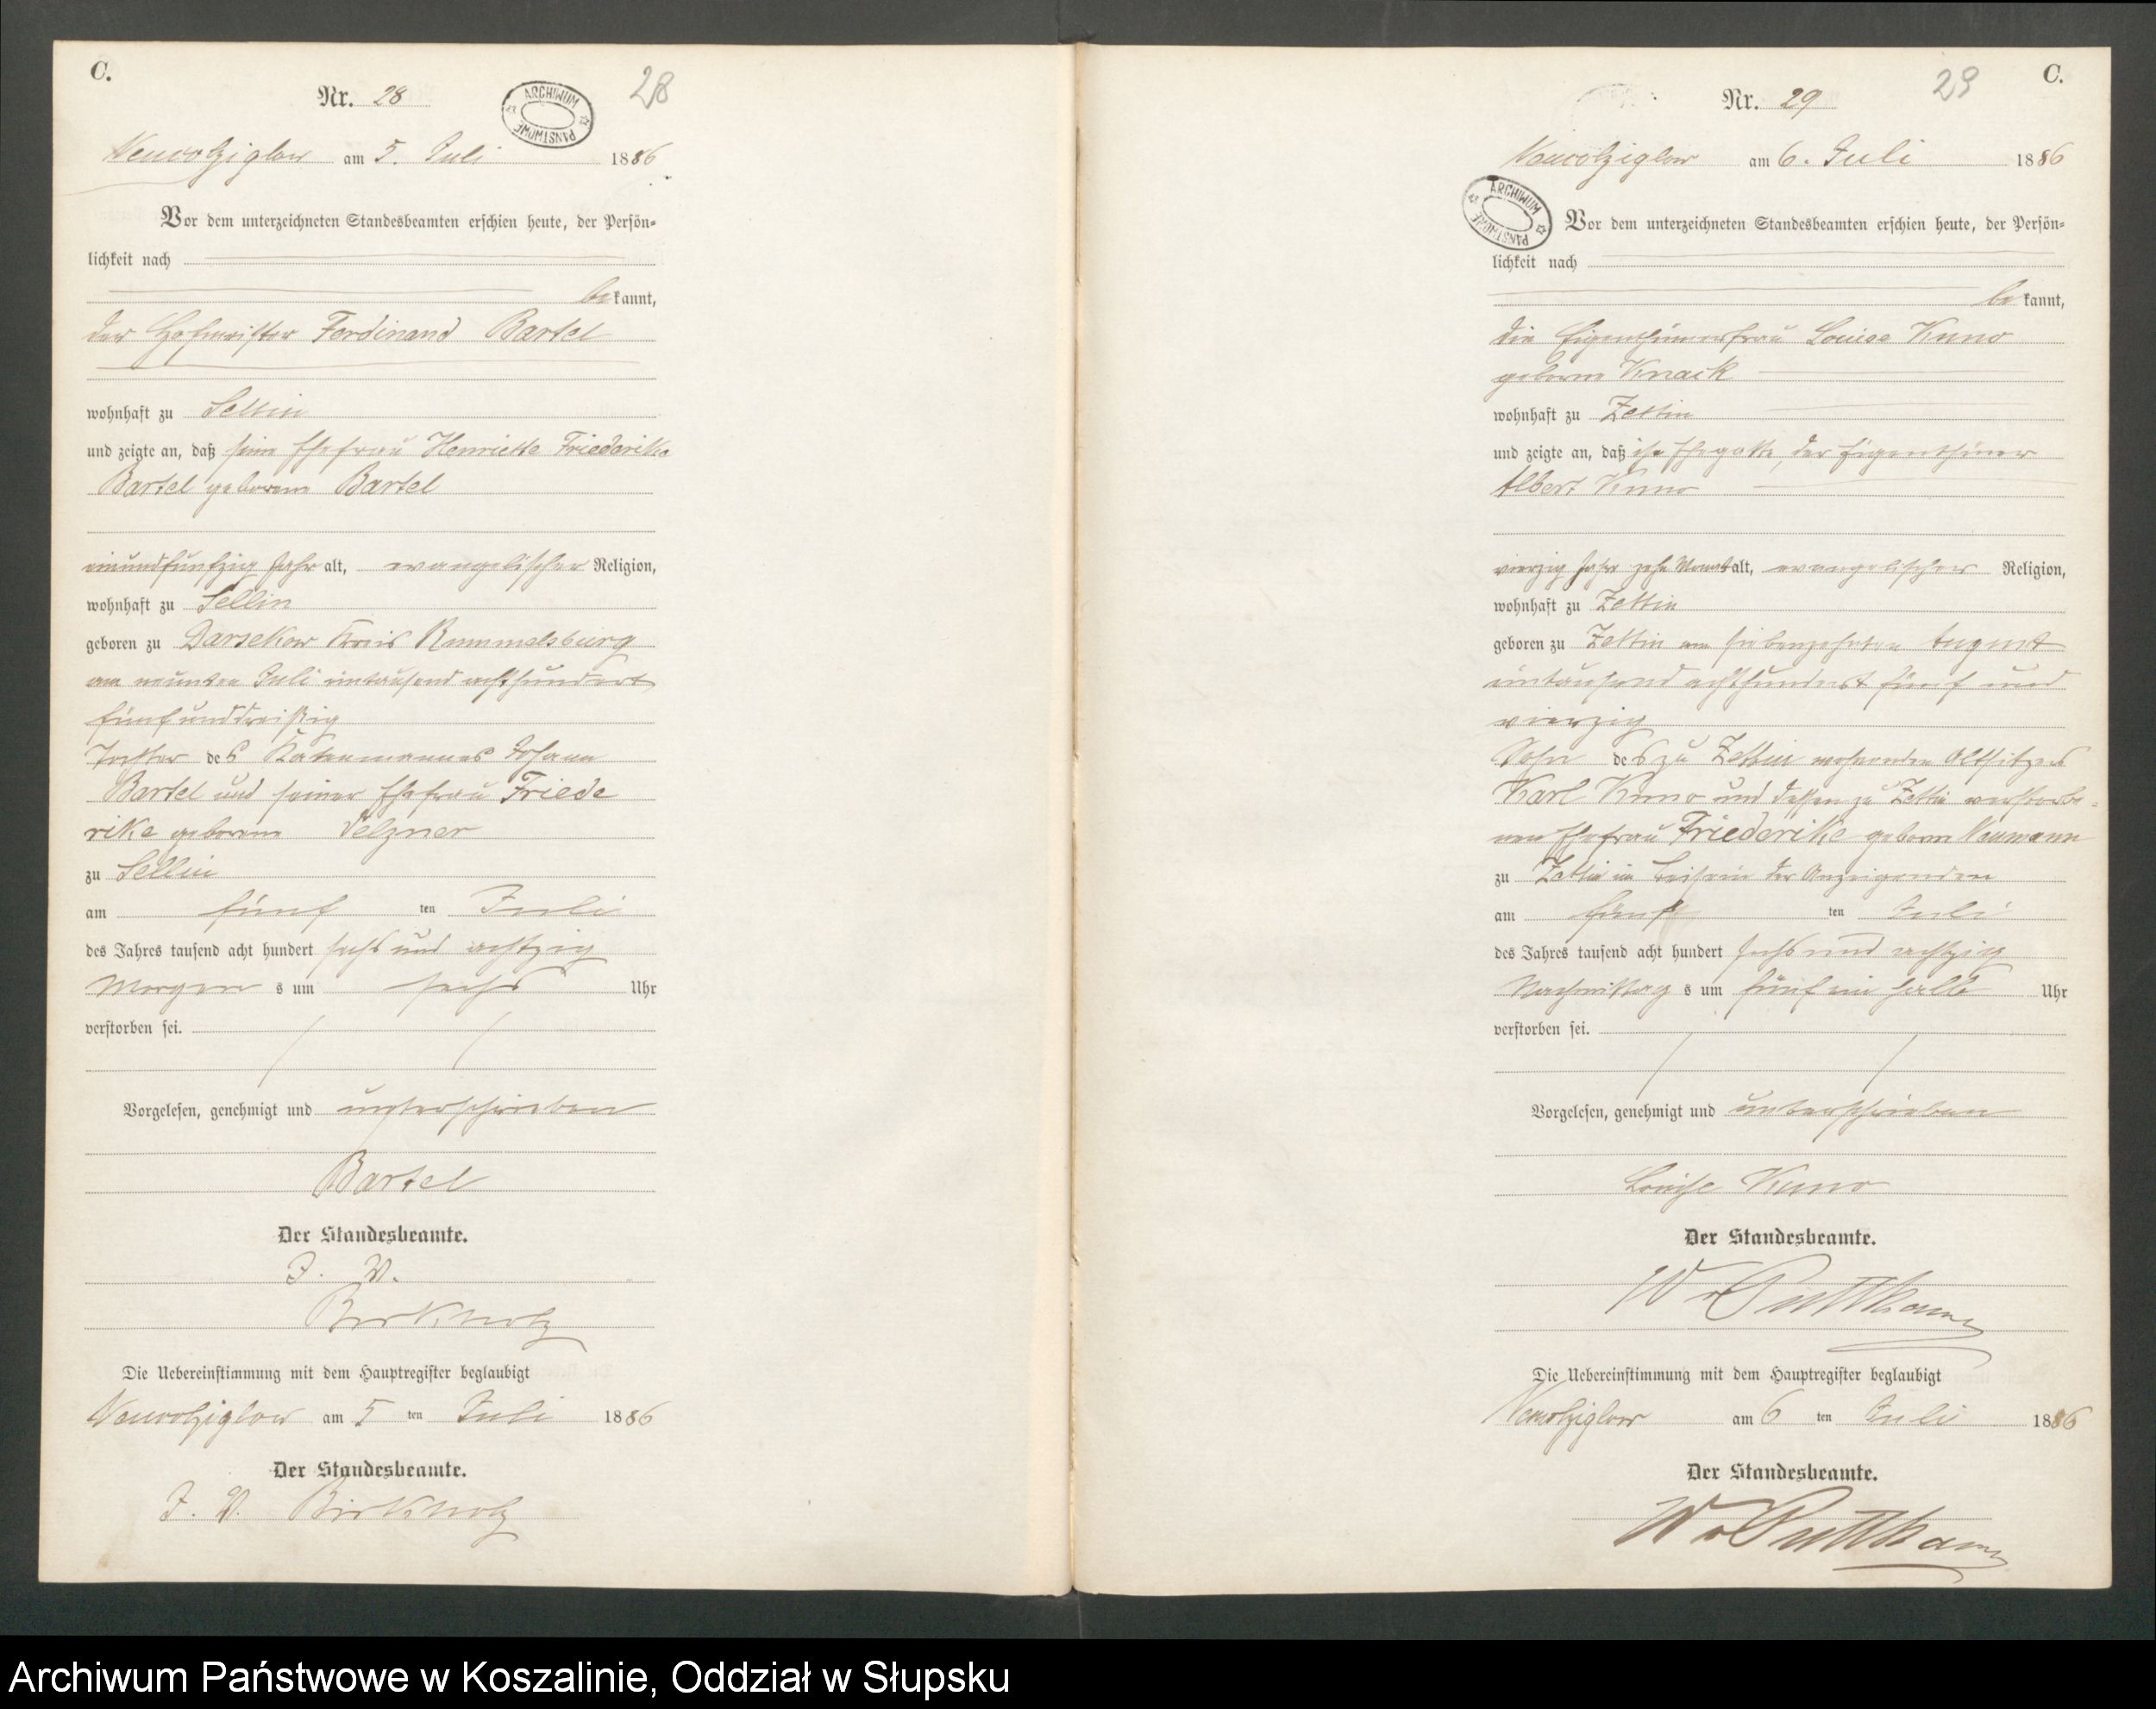 C.
Nr. 28
28
ARCHIWUM PAŃSTWOWE
Neuwolziglow am 5. Juli 1886
Vor dem unterzeichneten Standesbeamten erschien heute, der Persön-
lichkeit nach
be kannt,
der Hofmeister Ferdinand Bartel
wohnhaft zu Sellin
und zeigte an, daß seine Ehefrau Henriette Friederike
Bartel geborene Bartel
einundfunfzig Jahr alt, evangelischer Religion,
wohnhaft zu Sellin
geboren zu Darsekow Kreis Rummelsburg
am neunten Juli eintausend achthundert
fünfunddreißig
Tochter des Katenmannes Johann
Bartel und seiner Ehefrau Friede
rike geborene Velzner
zu Sellin
am fünf ten Juli
des Jahres tausend acht hundert sechs und achtzig
Morgen s um sechs Uhr
verstorben sei.
Vorgelesen, genehmigt und unterschrieben
Bartel
Der Standesbeamte.
J. V.
Birkholz
Die Uebereinstimmung mit dem Hauptregister beglaubigt
Neuwolziglow am 5 ten Juli 1886
Der Standesbeamte.
J. V. Birkholz
C.
29
Nr. 29
Neuwolziglow am 6. Juli 1886
ARCHIWUM PAŃSTWOWE
Vor dem unterzeichneten Standesbeamten erschien heute, der Persön-
lichkeit nach
be kannt,
die Eigenthümerfrau Louise Kuno
geborne Knack
wohnhaft zu Zettin
und zeigte an, daß ihr Ehegatte, der Eigenthümer
Albert Kuno
vierzig Jahr zehn Monat alt, evangelischer Religion,
wohnhaft zu Zettin
geboren zu Zettin am siebenzehnten August
eintausend achthundert fünf und
vierzig
Sohn des zu Zettin wohnenden Altsitzers
Karl Kuno und dessen zu Zettin verstorbe-
nen Ehefrau Friederike geborne Neumann
zu Zettin in Beisein der Anzeigenden
am fünf ten Juli
des Jahres tausend acht hundert sechs und achtzig
Nachmittag s um fünf ein halb Uhr
verstorben sei.
Vorgelesen, genehmigt und unterschrieben
Louise Kuno
Der Standesbeamte.
W v Puttkamer
Die Uebereinstimmung mit dem Hauptregister beglaubigt
Neuwolziglow am 6 ten Juli 1886
Der Standesbeamte.
W v Puttkamer
Archiwum Państwowe w Koszalinie, Oddział w Słupsku